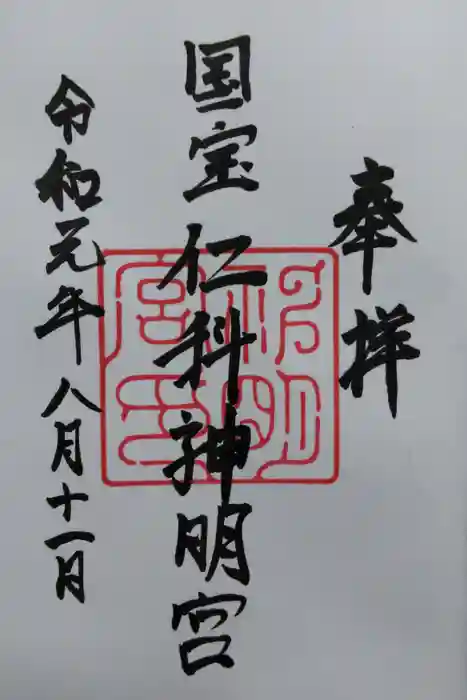 奉拝
国宝 仁科神明宮
令和元年八月十一日
神明宮玉